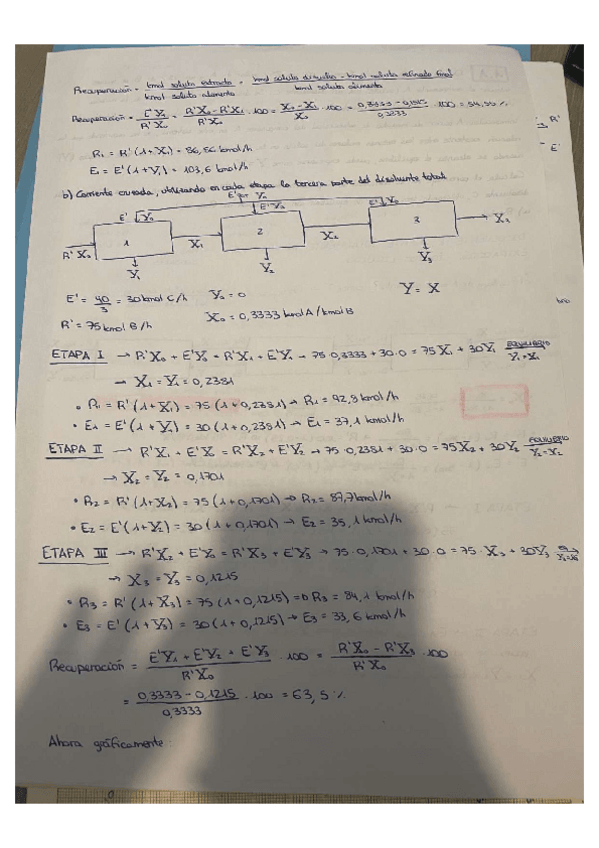 Recuperación = kmol soluto extracto / kmol soluto alimento = kmol soluto - kmol soluto refinado final / kmol soluto alimento
Recuperación = E'Y₁ / R'X₀ = R'X₀ - R'X₁ / R'X₀ · 100 = X₀ - X₁ / X₀ · 100 = / 0,3333 · 100 =
R₁ = R' (1+X₁) = 86,36 kmol/h
E₁ = E' (1+Y₁) = 103,6 kmol/h
b) Corriente cruzada, utilizando en cada etapa la tercera parte del disolvente total.
E' Y₀
E' Y₀ E' Y₀ E' Y₀
R'X₀ 1 X₁ 2 X₂ 3 X₃
Y₁ Y₂ Y₃
E' = 90/3 = 30 kmol C/h Y₀ = 0 Y = X
R' = 75 kmol B/h X₀ = 0,3333 kmol A/kmol B
ETAPA I → R'X₀ + E'Y₀ = R'X₁ + E'Y₁ → 75·0,3333 + 30·0 = 75X₁ + 30Y₁ EQUILIBRIO Y₁=X₁
→ X₁ = Y₁ = 0,2381
• R₁ = R' (1+X₁) = 75 (1+0,2381) → R₁ = 92,9 kmol/h
• E₁ = E' (1+Y₁) = 30 (1+0,2381) → E₁ = 37,1 kmol/h
ETAPA II → R'X₁ + E'Y₀ = R'X₂ + E'Y₂ → 75·0,2381 + 30·0 = 75X₂ + 30Y₂ EQUILIBRIO Y₂=X₂
→ X₂ = Y₂ = 0,1701
• R₂ = R' (1+X₂) = 75 (1+0,1701) → R₂ = 87,7 kmol/h
• E₂ = E' (1+Y₂) = 30 (1+0,1701) → E₂ = 35,1 kmol/h
ETAPA III → R'X₂ + E'Y₀ = R'X₃ + E'Y₃ → 75·0,1701 + 30·0 = 75·X₃ + 30Y₃
→ X₃ = Y₃ = 0,1215
• R₃ = R' (1+X₃) = 75 (1+0,1215) => R₃ = 84,1 kmol/h
• E₃ = E' (1+Y₃) = 30 (1+0,1215) → E₃ = 33,6 kmol/h
Recuperación = E'Y₁ + E'Y₂ + E'Y₃ / R'X₀ · 100 = R'X₀ - R'X₃ / R'X₀ · 100
= 0,3333 - 0,1215 / 0,3333 · 100 = 63,5 %
Ahora gráficamente: